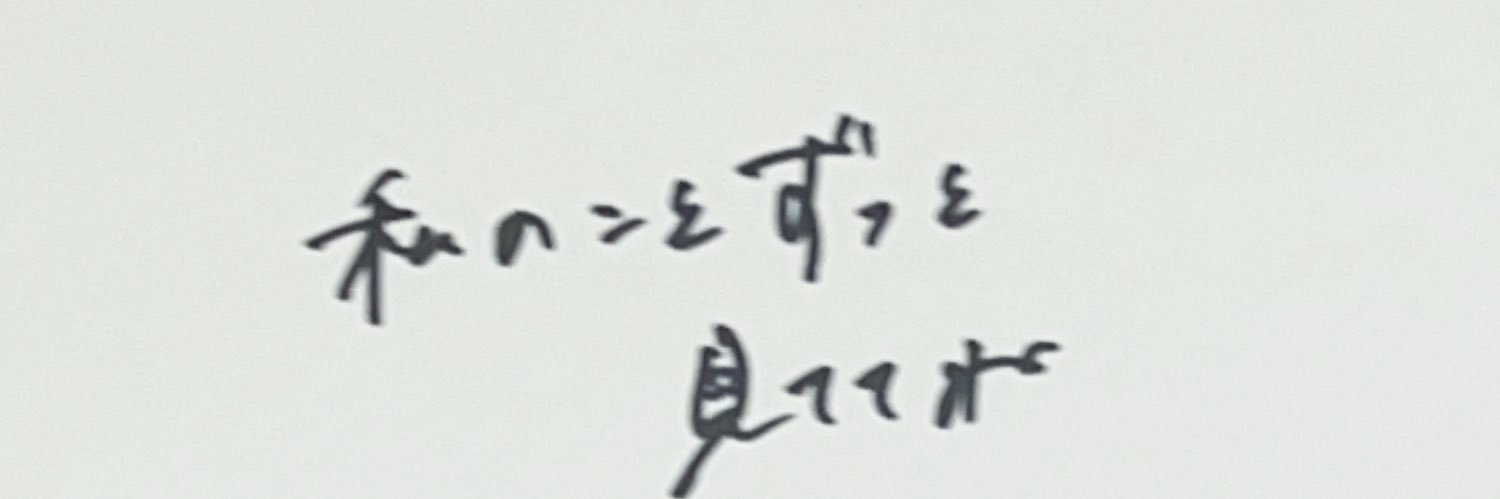 私のことずっと
見ててね